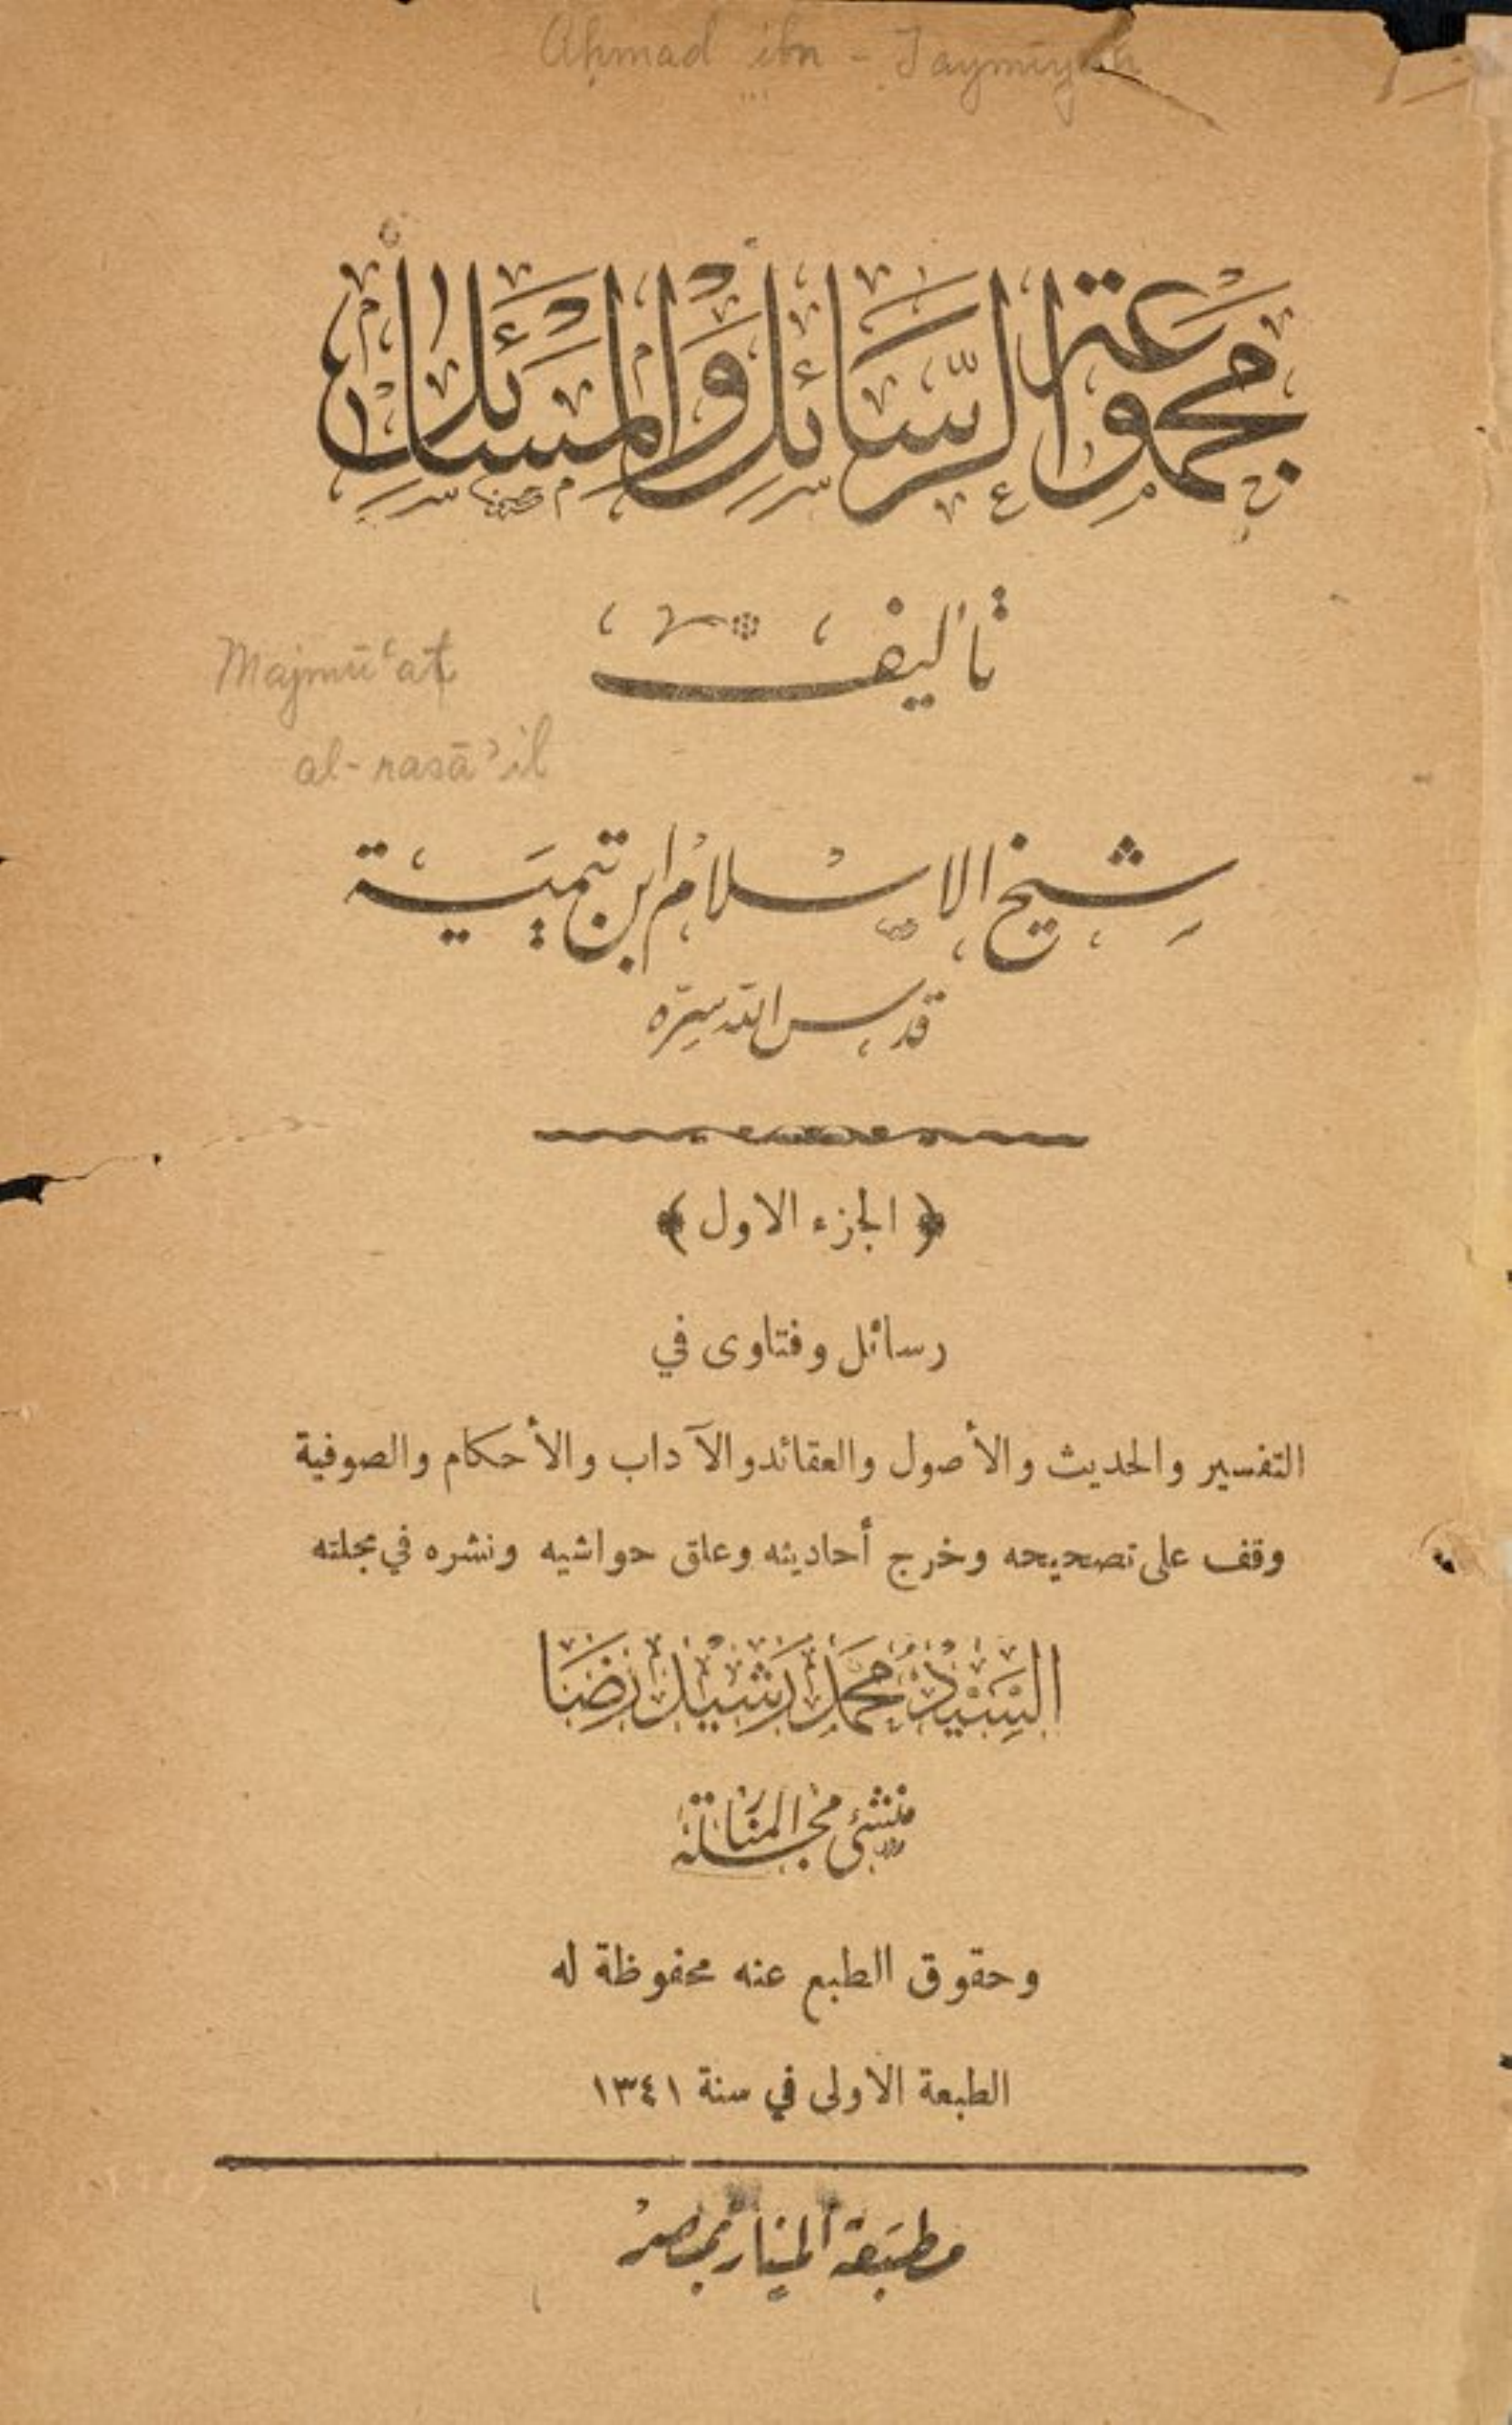 Aḥmad ibn - Taymīyah
مجموعة الرسائل والمسائل
تأليف
Majmū‘at
al-rasā’il
شيخ الاسلام ابن تيمية
قدس الله سره
﴿ الجزء الاول ﴾
رسائل وفتاوى في
التفسير والحديث والأصول والعقائد والآداب والأحكام والصوفية
وقف على تصحيحه وخرج أحاديثه وعلق حواشيه ونشره في مجلته
السَّيِّدْ مُحَمَّدْ رَشِيْدْ رِضَا
منشئ مجلة المنار
وحقوق الطبع عنه محفوظة له
الطبعة الاولى في سنة ١٣٤١
مطبعة المنار بمصر